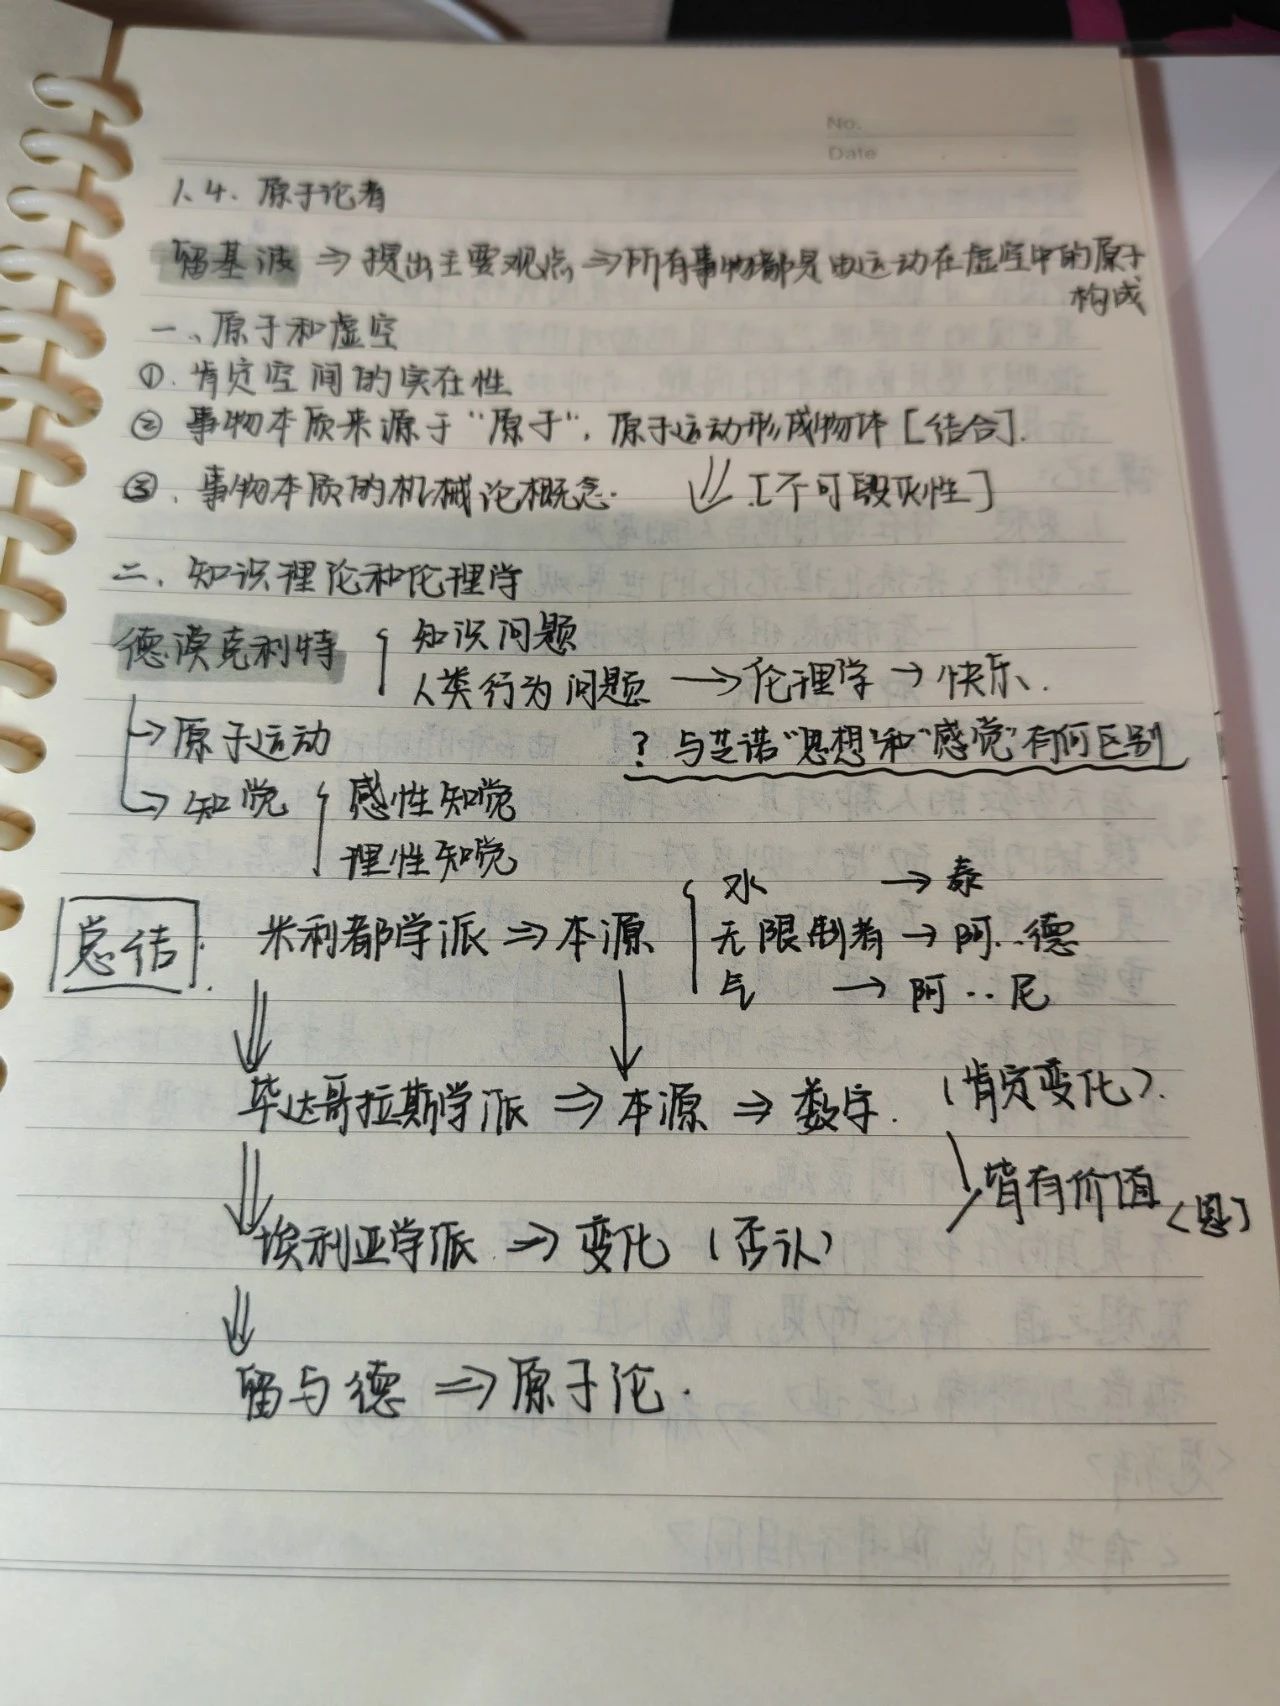 No.
Date
1.4. 原子论者
留基波 ⇒ 提出主要观点 ⇒ 所有事物都是由运动在虚空中的原子
构成
一、原子和虚空
①. 肯定空间的实在性
② 事物本质来源于“原子”, 原子运动形成物体 [结合].
③. 事物本质的机械论概念. ⇓ [不可毁灭性]
二、知识理论和伦理学
德漠克利特 { 知识问题
人类行为问题 → 伦理学 → 快乐.
→ 原子运动
? 与芝诺“思想”和“感觉”有何区别
→ 知觉 { 感性知觉
理性知觉
总结. 米利都学派 ⇒ 本源 { 水 → 泰
无限制者 → 阿..德
气 → 阿..尼
毕达哥拉斯学派 ⇒ 本源 ⇒ 数字. (肯定变化).
皆有价值 <恩]
埃利亚学派 ⇒ 变化 (否认)
留与德 ⇒ 原子论.